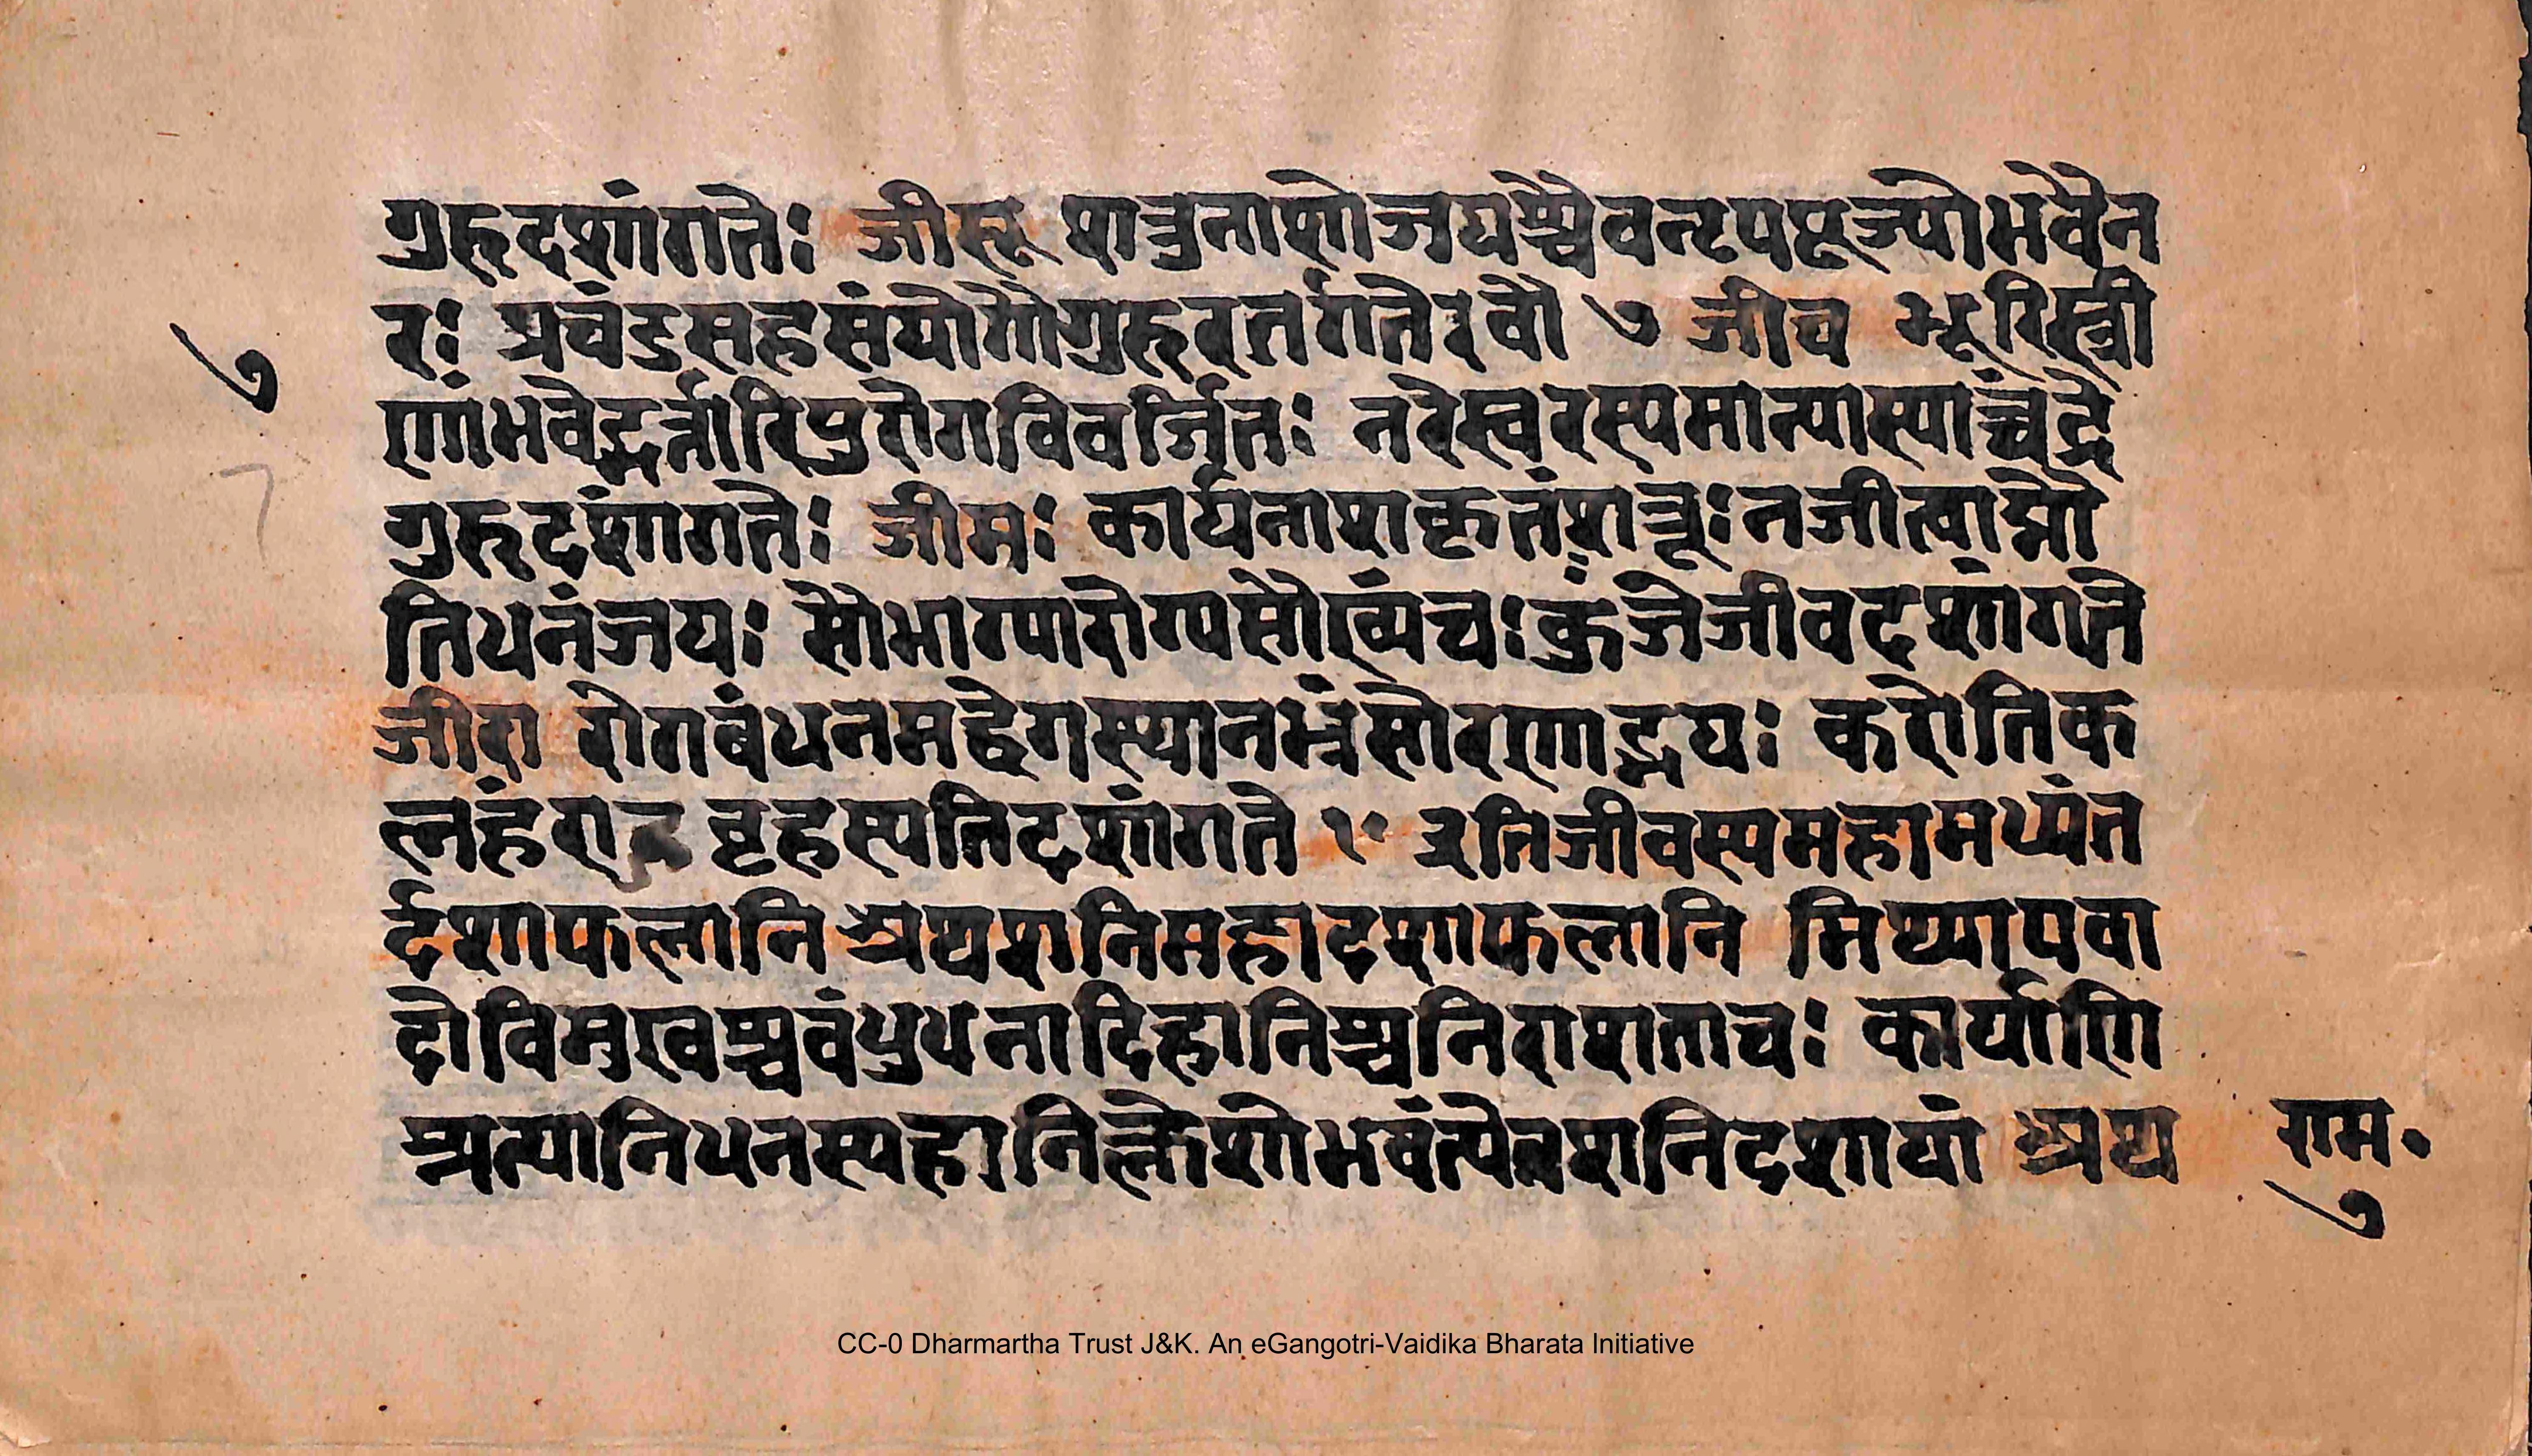 गुरुदशांगतेः जीसू शत्रुनाशोजयश्चैवनृपपूज्योभवेन
रः प्रचंडसहसंयोगोगुरुरन्तर्गतेरवौ ७ जीच भूरिस्त्री
णांभवेद्भर्तारिपुरोगविवर्जितः नरेस्वरस्यमात्यास्यांच्चंद्रे
गुरुदशांगतेः जीमः कार्यनाशकृतंशत्रूःनजीत्वाप्नो
तिधनंजयः सौभाग्यारोग्यसौख्यंचःकुजेजीवदशांगते
जीरा रोगबंधनमद्वेगस्थानभ्रंसोरणाद्भयः करोतिक
लहंरा बृहस्पतिदशांगते १॰ इतिजीवस्यमहामध्यंत
र्दशाफलानि अथशनिमहादशाफलानि मिथ्यापवा
दोविमुखश्चवंधुधनादिहानिश्चनिराशताचः कार्याणि
श्रत्यानिधनस्यहानिक्लेशोभवंत्येवशनिदशायां अथ
राम॰
७
७
7
CC-0 Dharmartha Trust J&K. An eGangotri-Vaidika Bharata Initiative